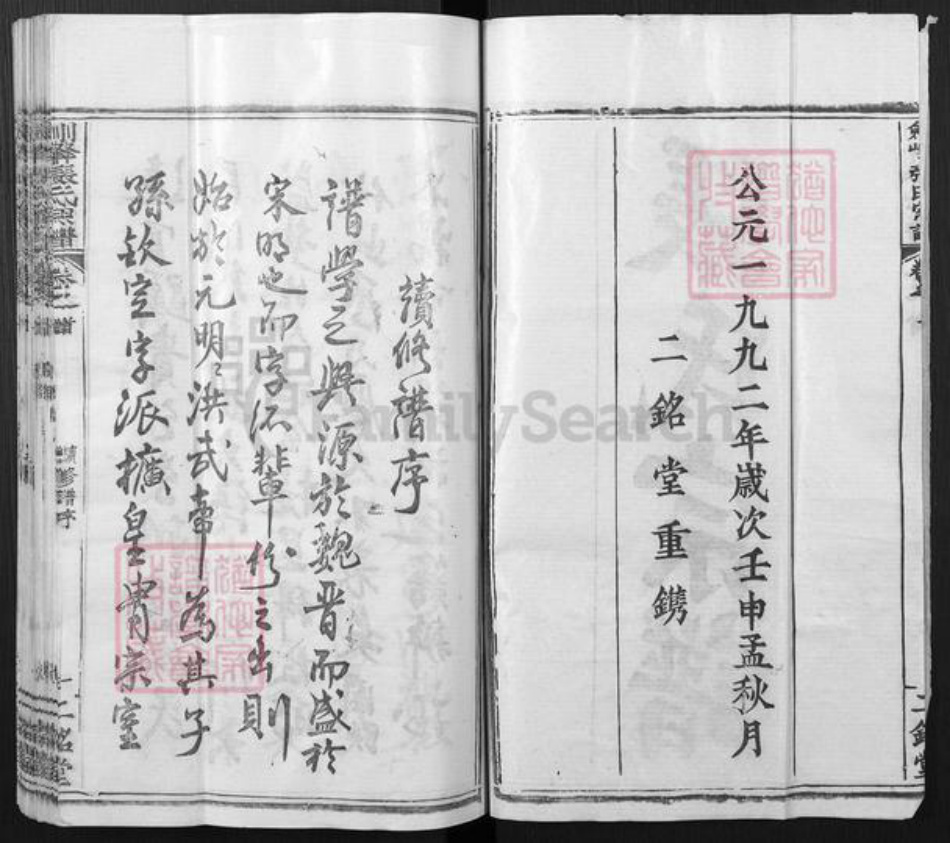 公元一九九二年歲次壬申孟秋月
二銘堂重鐫
續修譜序
譜學之興源於魏晉而盛於
宋明也而字派輩份之出則
始於元明明洪武帝為其子
孫欽定字派擴皇胄宗室
張氏宗譜
續修譜序
二銘堂
FamilySearch